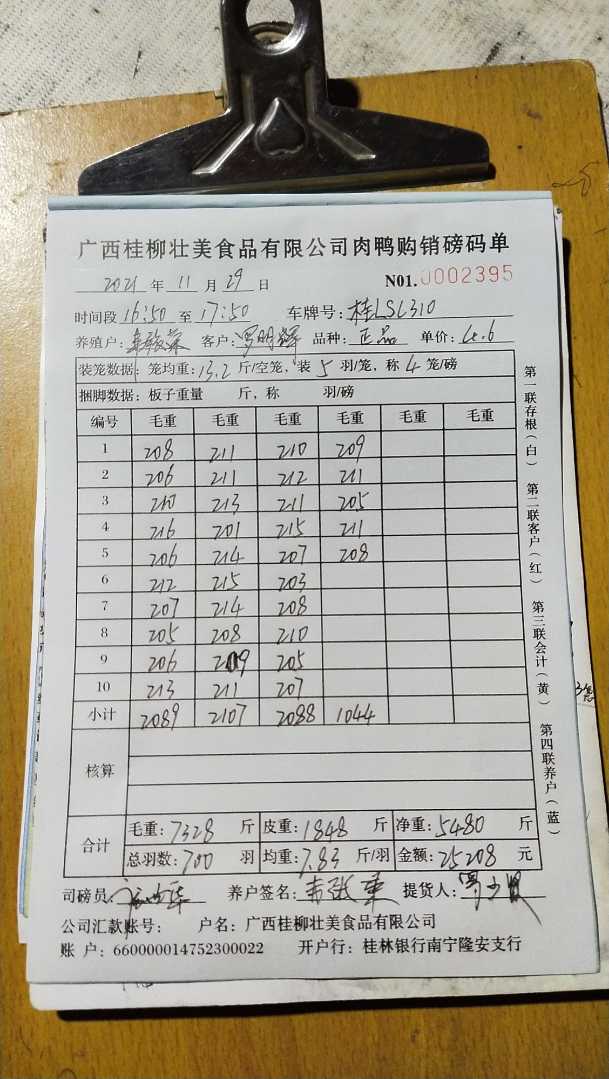 广西桂柳壮美食品有限公司肉鸭购销磅码单
2021 年 11 月 29 日 N01.0002395
时间段 16:50 至 17:50 车牌号: 桂LSL310
养殖户: 客户: 罗明辉 品种: 正品 单价: 4.6
装笼数据: 笼均重: 13.2 斤/空笼, 装 5 羽/笼, 称 4 笼/磅
捆脚数据: 板子重量 斤, 称 羽/磅
编号 毛重 毛重 毛重 毛重 毛重 毛重
1 208 211 210 209
2 206 211 212 211
3 210 213 211 205
4 216 201 215 211
5 206 214 207 208
6 212 215 203
7 207 214 208
8 205 208 210
9 206 209 205
10 213 211 207
小计 2089 2107 2088 1044
核算
合计 毛重: 7328 斤 皮重: 1848 斤 净重: 5480 斤
总羽数: 700 羽 均重: 7.83 斤/羽 金额: 25208 元
司磅员 养户签名: 提货人:
公司汇款账号: 户名: 广西桂柳壮美食品有限公司
账 户: 660000014752300022 开户行: 桂林银行南宁隆安支行
第一联存根(白) 第二联客户(红) 第三联会计(黄) 第四联养户(蓝)